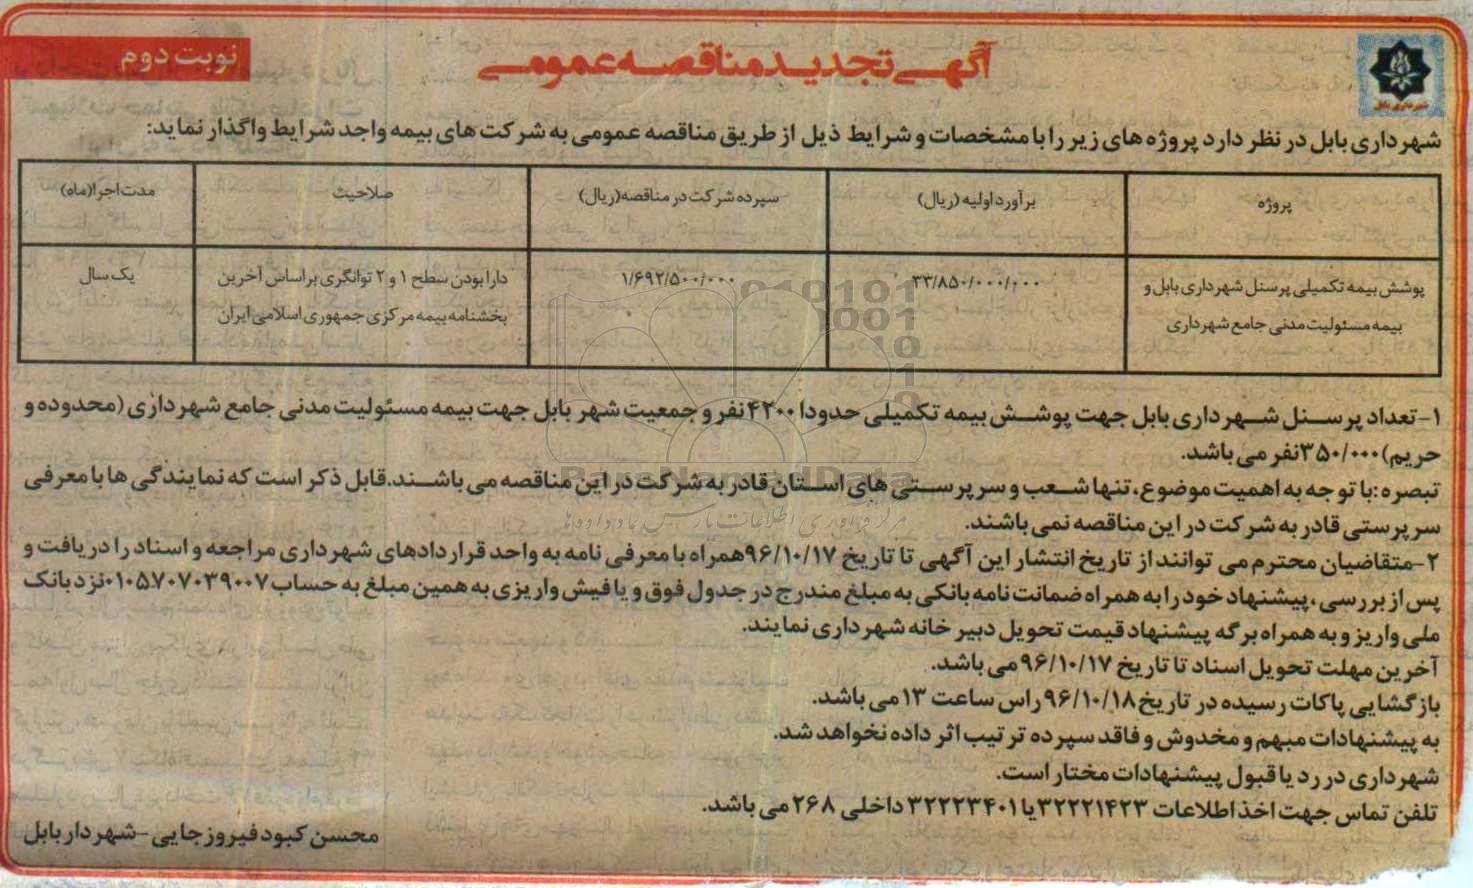 آگهی تجدید مناقصه عمومی
نوبت دوم
شهرداری بابل
شهرداری بابل در نظر دارد پروژه های زیر را با مشخصات و شرایط ذیل از طریق مناقصه عمومی به شرکت های بیمه واجد شرایط واگذار نماید:
پروژه
برآورد اولیه (ریال)
سپرده شرکت در مناقصه(ریال)
صلاحیت
مدت اجرا(ماه)
پوشش بیمه تکمیلی پرسنل شهرداری بابل و
بیمه مسئولیت مدنی جامع شهرداری
۳۳/۸۵۰/۰۰۰/۰۰۰
۱/۶۹۲/۵۰۰/۰۰۰
دارا بودن سطح ۱ و ۲ توانگری براساس آخرین
بخشنامه بیمه مرکزی جمهوری اسلامی ایران
یک سال
۱-تعداد پرسنل شهرداری بابل جهت پوشش بیمه تکمیلی حدودا ۴۲۰۰ نفر و جمعیت شهر بابل جهت بیمه مسئولیت مدنی جامع شهرداری (محدوده و
حریم) ۳۵۰/۰۰۰نفر می باشد.
تبصره :با توجه به اهمیت موضوع، تنها شعب و سرپرستی های استان قادر به شرکت در این مناقصه می باشند.قابل ذکر است که نمایندگی ها با معرفی
سرپرستی قادر به شرکت در این مناقصه نمی باشند.
۲-متقاضیان محترم می توانند از تاریخ انتشار این آگهی تا تاریخ ۹۶/۱۰/۱۷همراه با معرفی نامه به واحد قراردادهای شهرداری مراجعه و اسناد را دریافت و
پس از بررسی، پیشنهاد خود را به همراه ضمانت نامه بانکی به مبلغ مندرج در جدول فوق و یا فیش واریزی به همین مبلغ به حساب ۰۱۰۵۷۰۷۰۳۹۰۰۷نزد بانک
ملی واریز و به همراه برگه پیشنهاد قیمت تحویل دبیر خانه شهرداری نمایند.
آخرین مهلت تحویل اسناد تا تاریخ ۹۶/۱۰/۱۷می باشد.
بازگشایی پاکات رسیده در تاریخ ۹۶/۱۰/۱۸راس ساعت ۱۳ می باشد.
به پیشنهادات مبهم و مخدوش و فاقد سپرده ترتیب اثر داده نخواهد شد.
شهرداری در رد یا قبول پیشنهادات مختار است.
تلفن تماس جهت اخذ اطلاعات ۳۲۲۲۱۴۲۳یا ۳۲۲۲۳۴۰۱ داخلی ۲۶۸ می باشد.
محسن کبود فیروزجایی -شهردار بابل
ParsNamadData